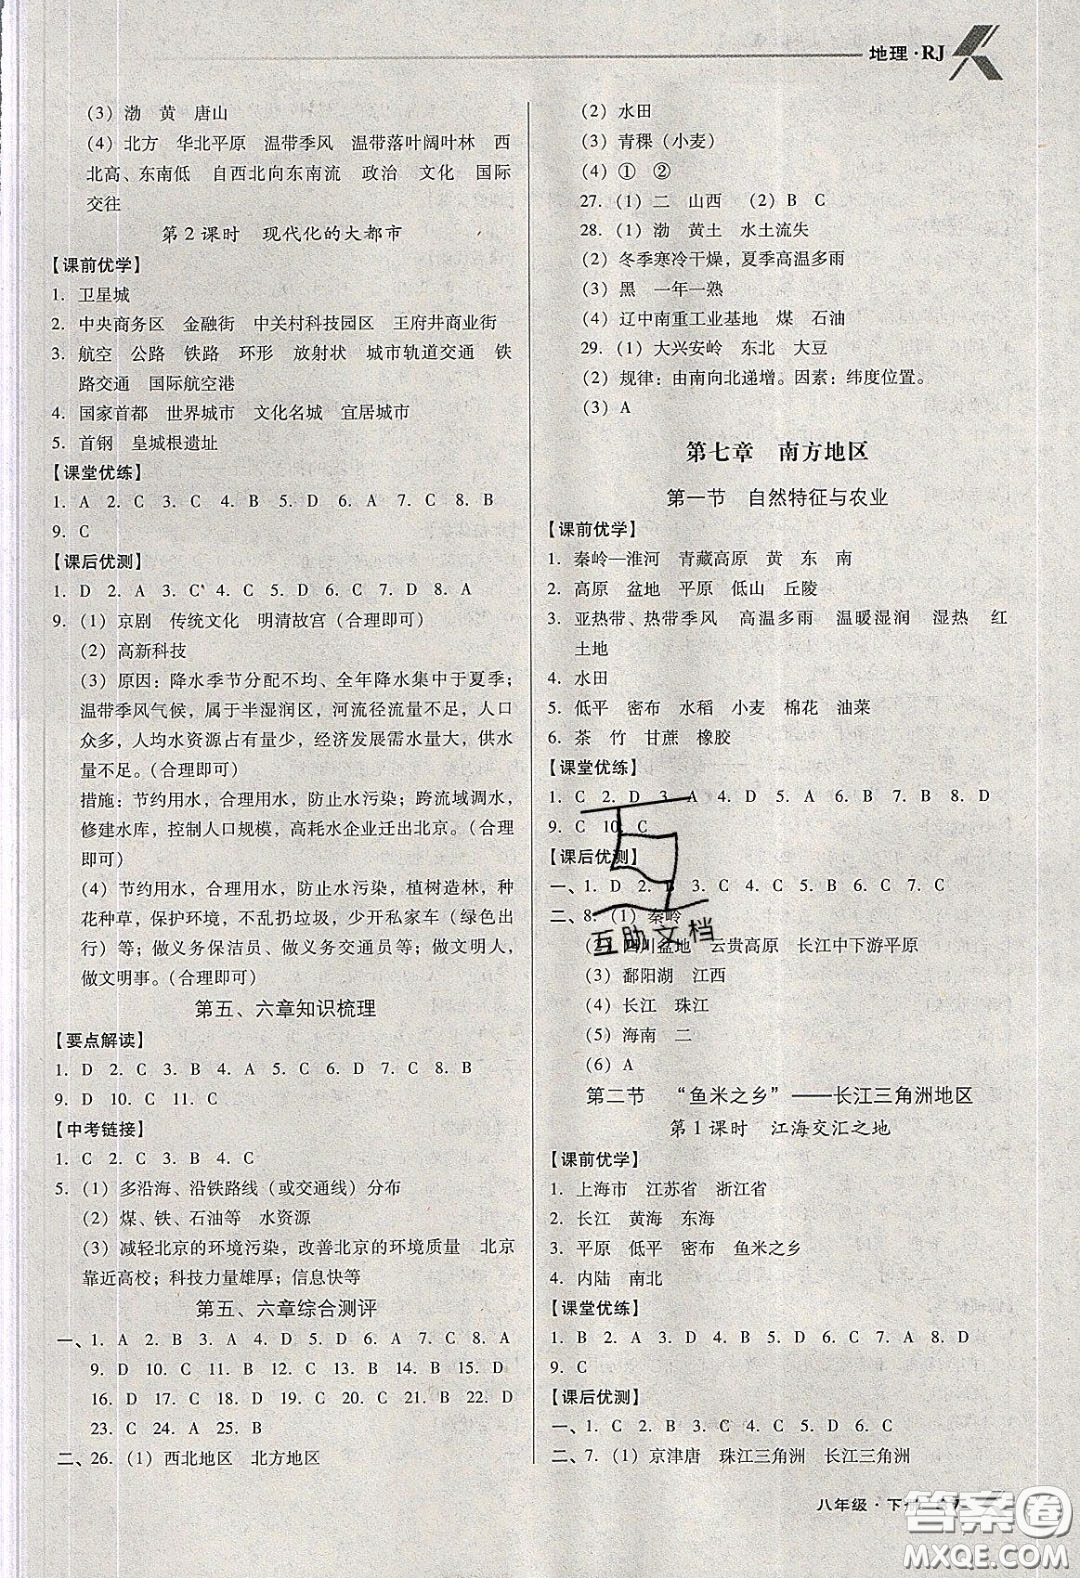 地理·RJ
（3）渤　黄　唐山
（4）北方　华北平原　温带季风　温带落叶阔叶林　西
北高、东南低　自西北向东南流　政治　文化　国际
交往
第2课时　现代化的大都市
【课前优学】
1. 卫星城
2. 中央商务区　金融街　中关村科技园区　王府井商业街
3. 航空　公路　铁路　环形　放射状　城市轨道交通　铁
路交通　国际航空港
4. 国家首都　世界城市　文化名城　宜居城市
5. 首钢　皇城根遗址
【课堂优练】
1. A　2. C　3. D　4. D　5. A　6. A　7. C　8. B
9. C
【课后优测】
1. D　2. A　3. C　4. C　5. D　6. C　7. D　8. A
9.（1）京剧　传统文化　明清故宫（合理即可）
（2）高新科技
（3）原因：降水季节分配不均、全年降水集中在夏季；
温带季风气候，属于半湿润区，河流径流量不大，人口
众多，人均水资源占有量少，经济发展需水量大，供水
量不足。（合理即可）
措施：节约用水，合理用水，防止水污染；跨流域调水，
修建水库，控制人口规模，高耗水企业迁出北京。（合理
即可）
（4）节约用水，合理用水，防止水污染，植树造林，种
花种草，保护环境，不乱扔垃圾，少开私家车（绿色出
行）等；做义务保洁员、做义务交通员等；做文明人，
做文明事。（合理即可）
第五、六章知识梳理
【要点解读】
1. D　2. C　3. B　4. A　5. D　6. D　7. C　8. B
9. D　10. C　11. C
【中考链接】
1. C　2. C　3. B　4. C
5.（1）多沿海、沿铁路线（或交通线）分布
（2）煤、铁、石油等　水资源
（3）减轻北京的环境污染，改善北京的环境质量　北京
靠近高校；科技力量雄厚；信息快等
第五、六章综合测评
一、1. A　2. B　3. A　4. D　5. D　6. C　7. C　8. A
9. D　10. C　11. C　12. B　13. A　14. B　15. D
16. D　17. D　18. C　19. D　20. B　21. B　22. D
23. C　24. A　25. B
二、26.（1）西北地区　北方地区
（2）水田
（3）青稞（小麦）
（4）①　②
27.（1）二　山西　（2）B　C
28.（1）渤　黄土　水土流失
（2）冬季寒冷干燥，夏季高温多雨
（3）黑　一年一熟
（4）辽中南重工业基地　煤　石油
29.（1）大兴安岭　东北　大豆
（2）规律：由南向北递增。因素：纬度位置。
（3）A
第七章　南方地区
第一节　自然特征与农业
【课前优学】
1. 秦岭—淮河　青藏高原　黄　东　南
2. 高原　盆地　平原　低山　丘陵
3. 亚热带、热带季风　高温多雨　温暖湿润　湿热　红
土地
4. 水田
5. 低平　密布　水稻　小麦　棉花　油菜
6. 茶　竹　甘蔗　橡胶
【课堂优练】
1. C　2. D　3. A　4. D　5. A　6. D　7. B　8. D
9. C　10. C
【课后优测】
一、1. D　2. B　3. C　4. C　5. D　6. C　7. C
二、8.（1）秦岭
（2）四川盆地　云贵高原　长江中下游平原
（3）鄱阳湖　江西
（4）长江　珠江
（5）海南　二
（6）A
第二节　“鱼米之乡”——长江三角洲地区
第1课时　江海交汇之地
【课前优学】
1. 上海市　江苏省　浙江省
2. 长江　黄海　东海
3. 平原　低平　密布　鱼米之乡
4. 内陆　南北
【课堂优练】
1. B　2. A　3. D　4. C　5. D　6. C　7. A　8. D
9. C
【课后优测】
一、1. C　2. B　3. C　4. A　5. D　6. C
二、7.（1）京津唐　珠江三角洲　长江三角洲
互助文档
八年级·下
答案圈
MXQE.COM